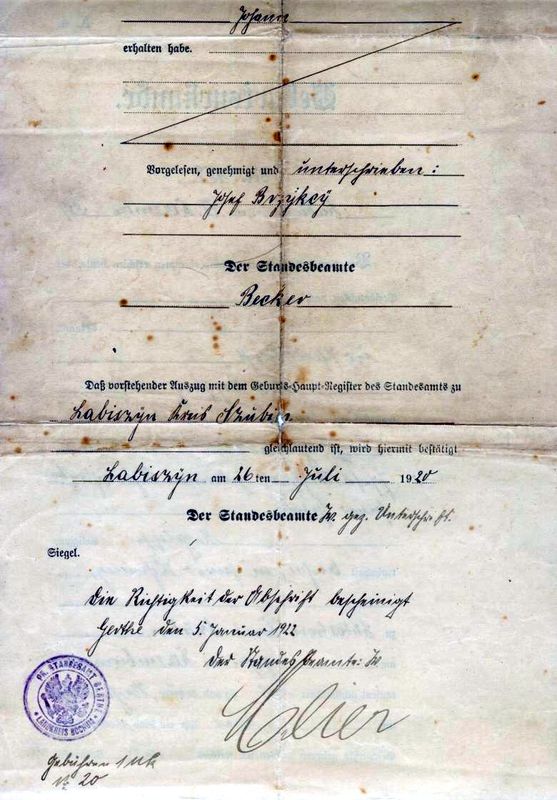 Johann
erhalten habe.
Vorgelesen, genehmigt und unterschrieben:
Josef
Der Standesbeamte
Becker
Daß vorstehender Auszug mit dem Geburts-Haupt-Register des Standesamts zu
Labiszyn Kreis
gleichlautend ist, wird hiermit bestätigt
Labiszyn am 26ten Juli 1920
Der Standesbeamte Iv. gez. Unterschrift.
Siegel.
Die Richtigkeit der Abschrift bescheinigt
Gerthe den 5. Januar 1922
Der Standesbeamte: Iv
PR. STANDESAMT GERTHE
* LANDKREIS BOCHUM *
Gebühren 1 mk
20